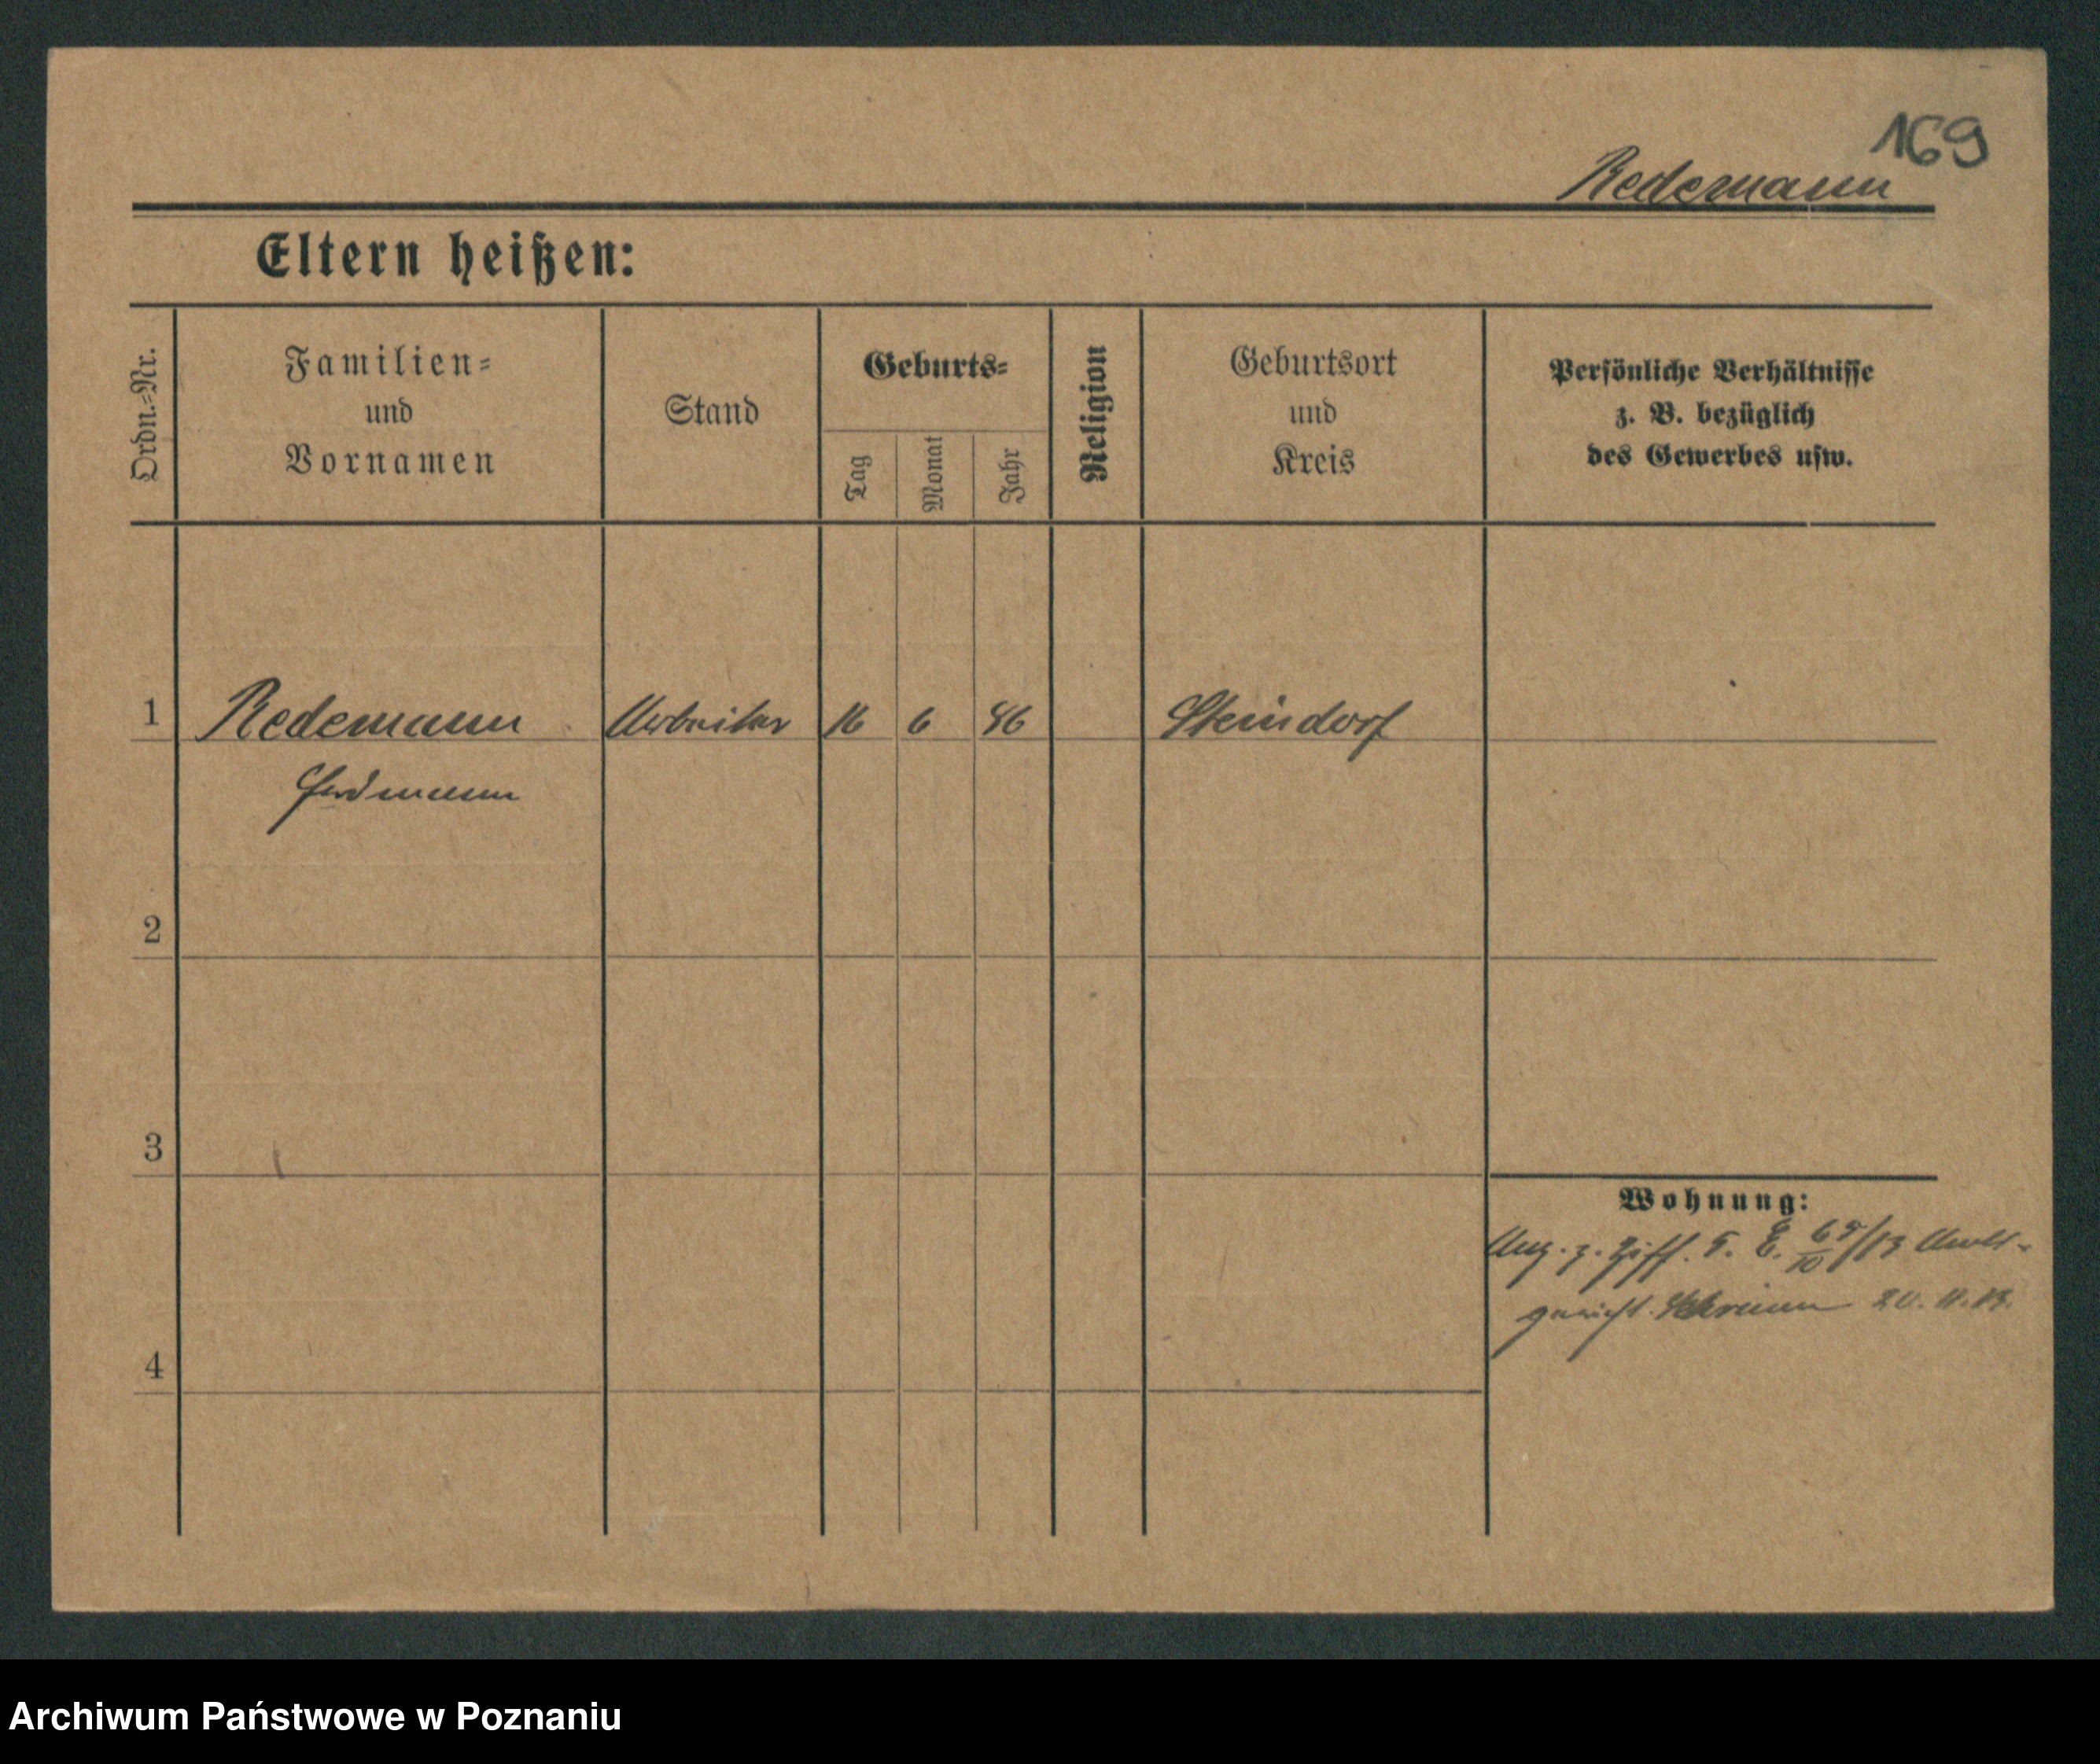 169
Redemann
Eltern heißen:
Ordn.=Nr.
Familien=
und
Vornamen
Stand
Geburts=
Tag
Monat
Jahr
Religion
Geburtsort
und
Kreis
Persönliche Verhältnisse
z. B. bezüglich
des Gewerbes usw.
1 Redemann Arbeiter 16 6 86 Steindorf
2
3
Wohnung:
z. Ziff. 5. E. /13
gericht. Schrimm 20. 11. 13.
4
Archiwum Państwowe w Poznaniu